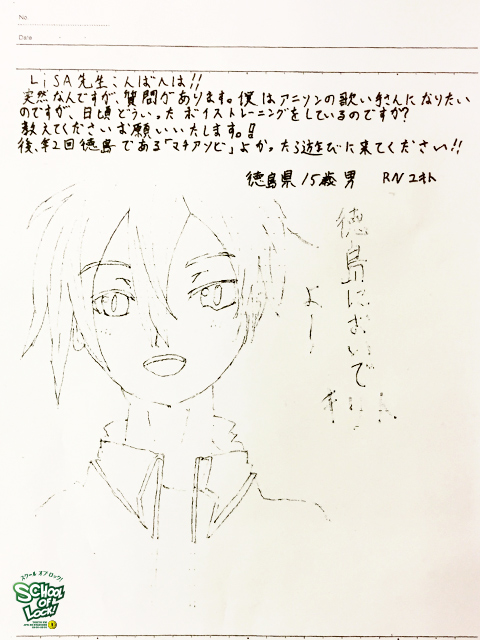 No.
Date
LiSA先生こんばんは!!
突然なんですが、質問があります。僕はアニソンの歌い手さんになりたい
のですが、日頃どういったボイストレーニングをしているのですか?
教えてくださいお願いいたします。!!
後、年2回徳島である「マチアソビ」よかったら遊びに来てください!!
徳島県 15歳 男 RN ユキト
徳島においで
よー!
スクール オブ ロック!
SCHOOL OF LOCK!